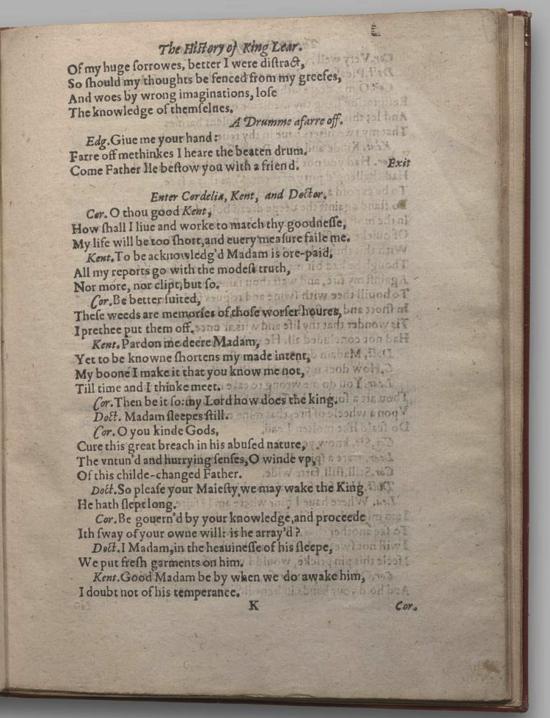 The History of King Lear.
Of my huge sorrowes, better I were distract,
So should my thoughts be fenced from my greefes,
And woes by wrong imaginations, lose
The knowledge of themselues.
A Drumme afarre off.
Edg. Giue me your hand:
Farre off methinkes I heare the beaten drum.
Come Father Ile bestow you with a friend. Exit
Enter Cordelia, Kent, and Doctor.
Cor. O thou good Kent,
How shall I liue and worke to match thy goodnesse,
My life will be too short, and euery measure faile me.
Kent. To be acknowledg'd Madam is ore-paid,
All my reports go with the modest truth,
Nor more, nor clipt, but so.
Cor. Be better suited,
These weeds are memories of those worser houres,
I prethee put them off.
Kent. Pardon me deere Madam,
Yet to be knowne shortens my made intent,
My boone I make it that you know me not,
Till time and I thinke meet.
Cor. Then be it so: my Lord how does the king.
Doct. Madam sleepes still.
Cor. O you kinde Gods,
Cure this great breach in his abused nature,
The vntun'd and hurrying senses, O winde vp,
Of this childe-changed Father.
Doct. So please your Maiesty, we may wake the King.
He hath slept long.
Cor. Be gouern'd by your knowledge, and proceede
Ith sway of your owne will: is he array'd?
Doct. I Madam, in the heauinesse of his sleepe,
We put fresh garments on him.
Kent. Good Madam be by when we do awake him,
I doubt not of his temperance.
K Cor.